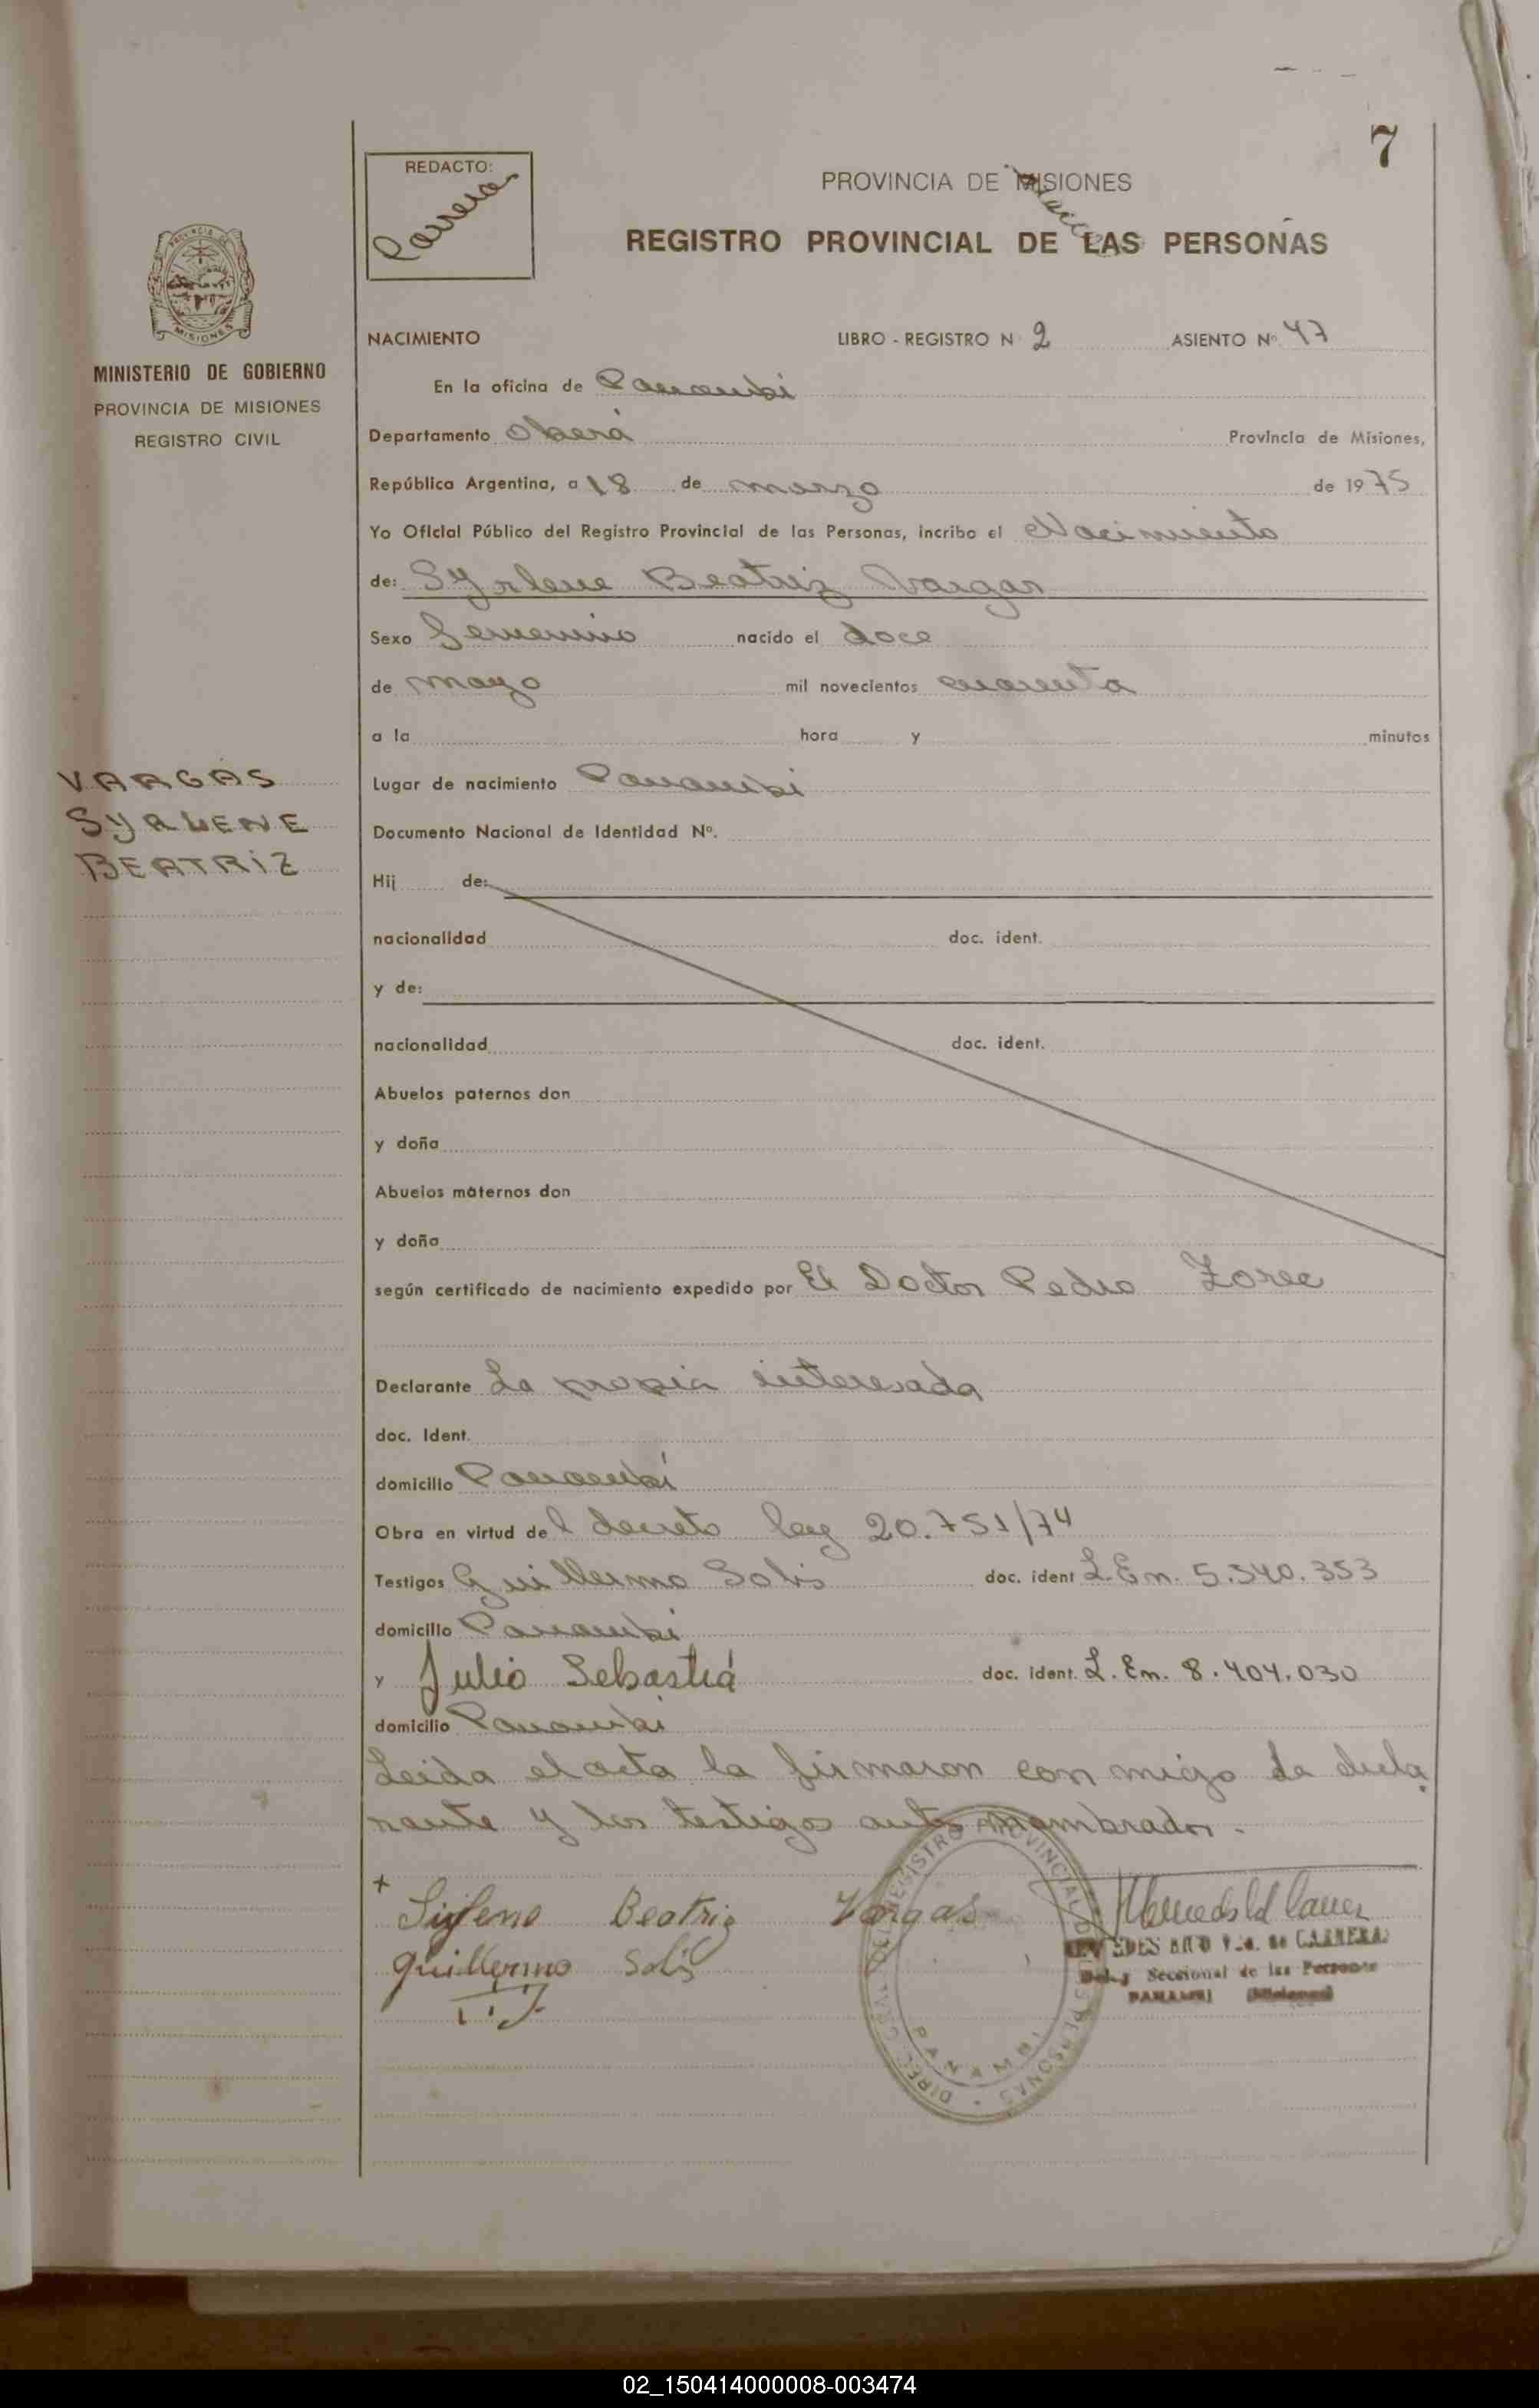 7
REDACTO:
Carrera
PROVINCIA DE MISIONES
REGISTRO PROVINCIAL DE LAS PERSONAS
MINISTERIO DE GOBIERNO
PROVINCIA DE MISIONES
REGISTRO CIVIL
NACIMIENTO LIBRO - REGISTRO N 2 ASIENTO Nº 47
En la oficina de Panambí
Departamento Oberá Provincia de Misiones,
República Argentina, a 18 de marzo de 1975
Yo Oficial Público del Registro Provincial de las Personas, incribo el Nacimiento
de: Syrlene Beatriz Vargas
Sexo Femenino nacido el doce
de mayo mil novecientos cuarenta
a la hora y minutos
VARGAS
SYRLENE
BEATRIZ
Lugar de nacimiento Panambí
Documento Nacional de Identidad Nº.
Hij de:
nacionalidad doc. ident.
y de:
nacionalidad doc. ident.
Abuelos paternos don
y doña
Abuelos maternos don
y doña
según certificado de nacimiento expedido por El Doctor Pedro Zorec
Declarante La propia interesada
doc. Ident.
domicilio Panambí
Obra en virtud del decreto ley 20.751/74
Testigos Guillermo Solis doc. ident L.En. 5.340.353
domicilio Panambí
y Julio Sebastiá doc. ident. L.En. 8.404.030
domicilio Panambí
Leida el acta la firmaron con migo la decla
rante y los testigos antes nombrados.-
+ Sirlene Beatriz Vargas
Guillermo Solis
DIREC. GRAL. DEL REGISTRO PROVINCIAL DE LAS PERSONAS
PANAMBI
Vda. de CARRERA
Seccional de las Personas
PANAMBI (Misiones)
02_150414000008-003474